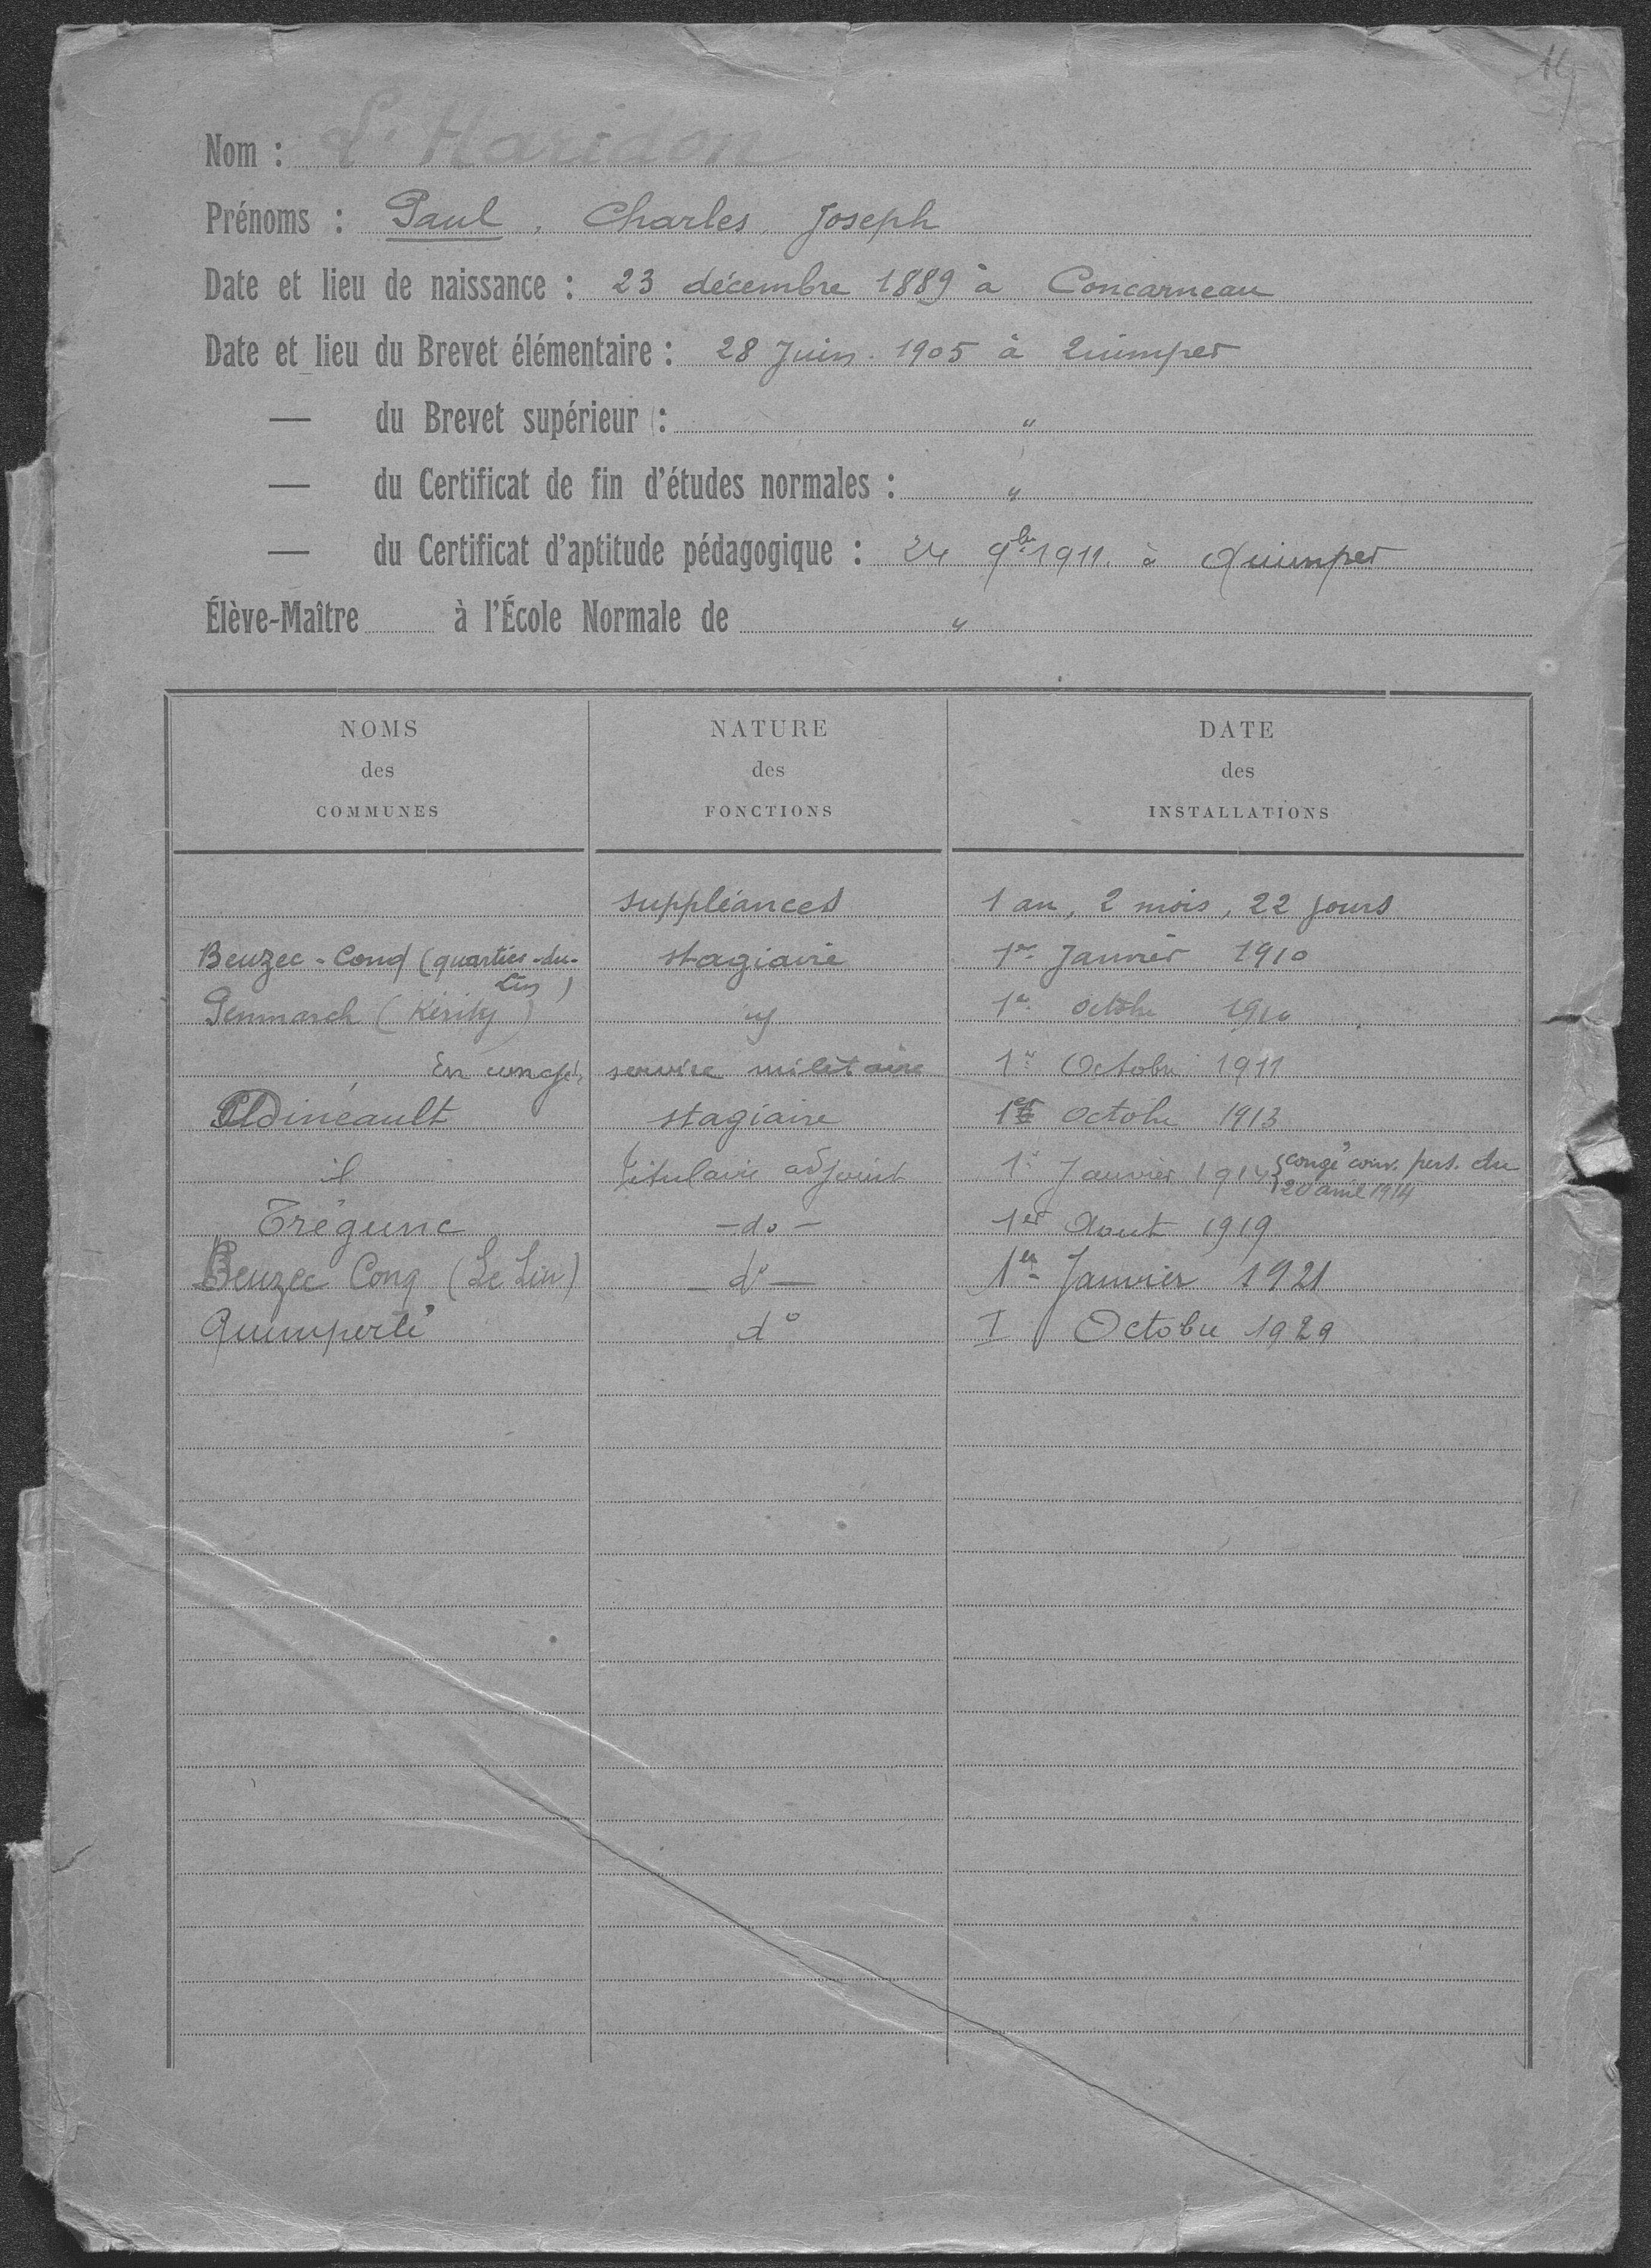 Nom : L'Haridon
Prénoms : Paul, Charles, Joseph
Date et lieu de naissance : 23 décembre 1889 à Concarneau
Date et lieu du Brevet élémentaire : 28 Juin 1905 à Quimper
— du Brevet supérieur : "
— du Certificat de fin d'études normales : "
— du Certificat d'aptitude pédagogique : 24 9bre 1911. à Quimper
Élève-Maître à l'École Normale de "
NOMS des COMMUNES
NATURE des FONCTIONS
DATE des INSTALLATIONS
suppléances 1 an, 2 mois, 22 jours
Beuzec-Conq (quartier-du-Lin) stagiaire 1er Janvier 1910
Penmarch (Kérity) id 1er octobre 1910
En congé, service militaire 1er Octobre 1911
Dinéault stagiaire 1er octobre 1913
id Titulaire adjoint 1er Janvier 1914 {congé conv. pers. du 20 avril 1914
Trégunc -do- 1er Aout 1919
Beuzec Conq (Le Lin) -do- 1er Janvier 1921
Quimperlé do I Octobre 1929